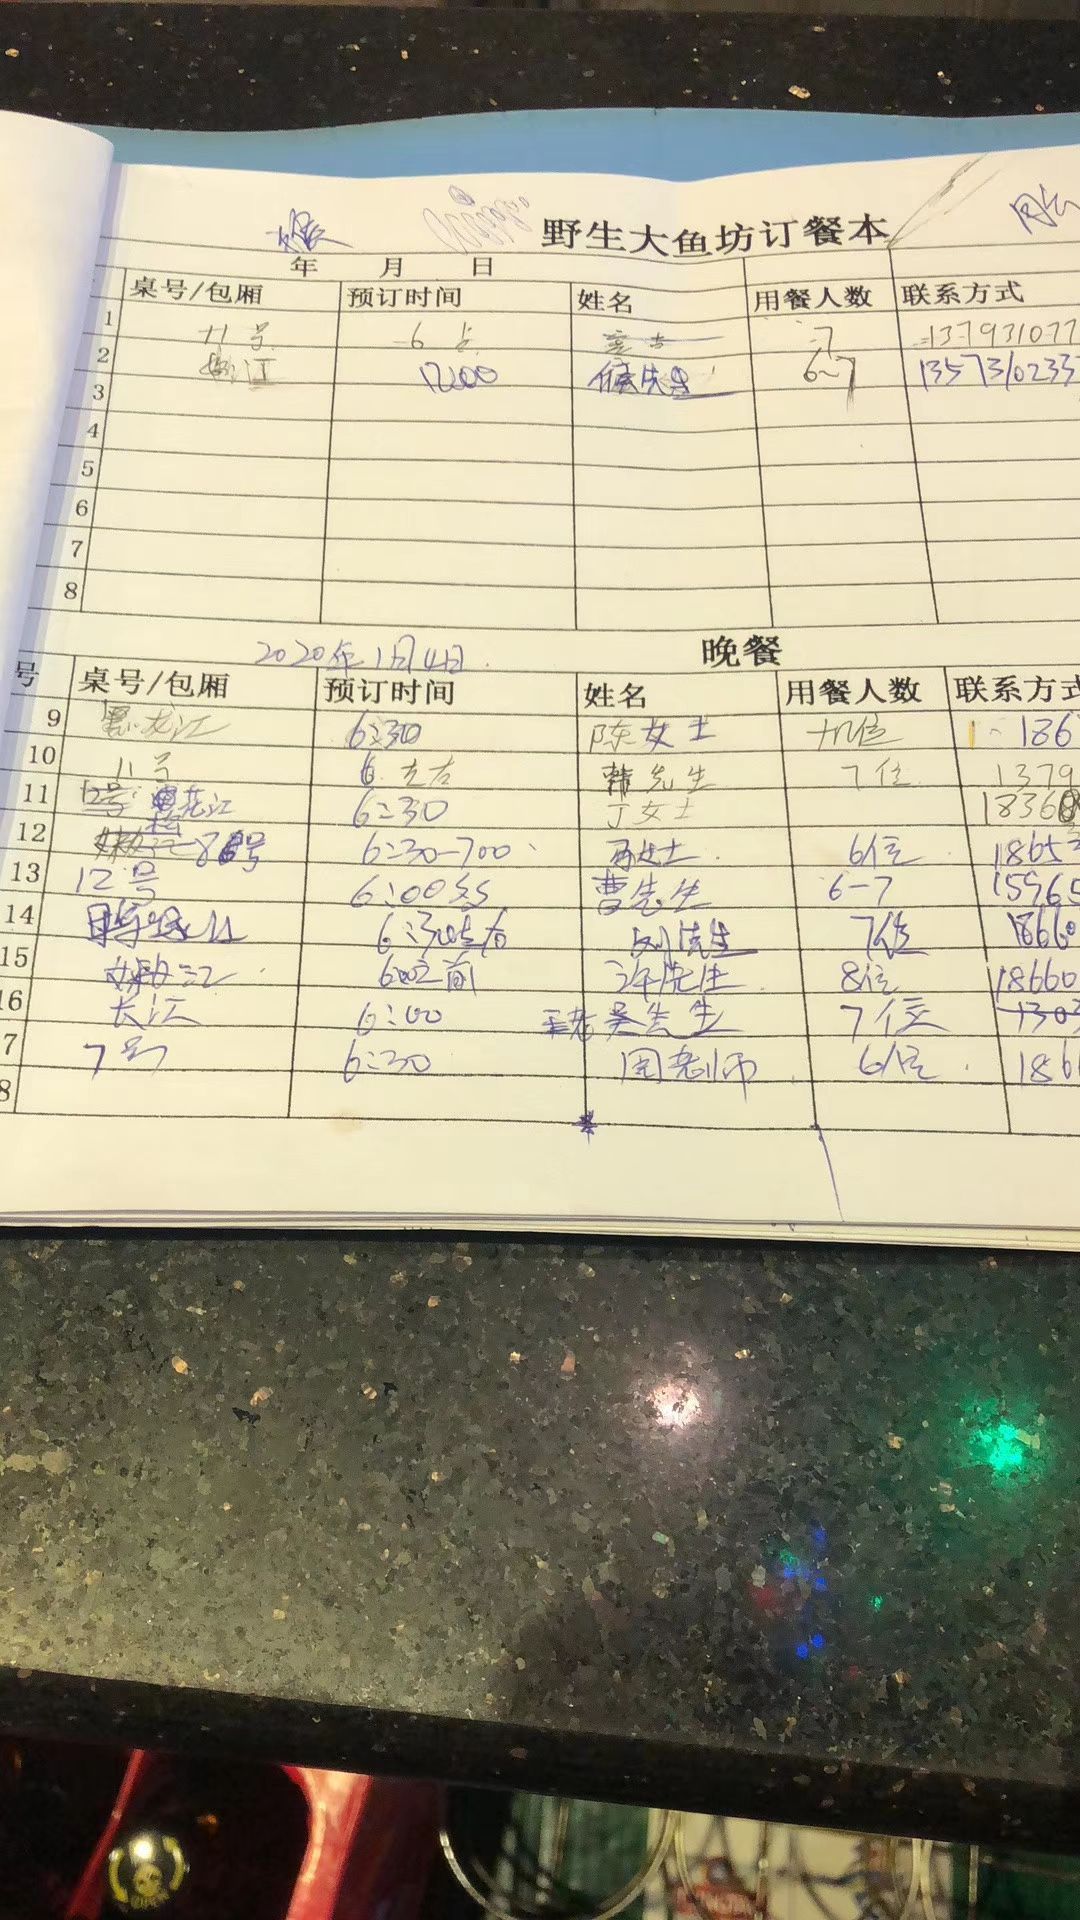 野生大鱼坊订餐本
年 月 日
桌号/包厢 预订时间 姓名 用餐人数 联系方式
1 11号 6点 7 137931077
2 12:00 侯先生 6-7 1357310233
3
4
5
6
7
8
2020年1月4日 晚餐
号 桌号/包厢 预订时间 姓名 用餐人数 联系方式
9 黑龙江 6:30 陈女士 位 186
10 11号 6左右 韩先生 7位 1379
11 12号 龙江 6:30 丁女士 18368
12 8号 6:30-7:00 女士 6位 1865
13 12号 6:00 曹先生 6-7 15965
14 6:30左右 刘先生 7位 18660
15 6:00之前 许先生 8位 18660
16 长江 6:00 吴先生 7位 1303
7 7号 6:30 周老师 6位 186
8